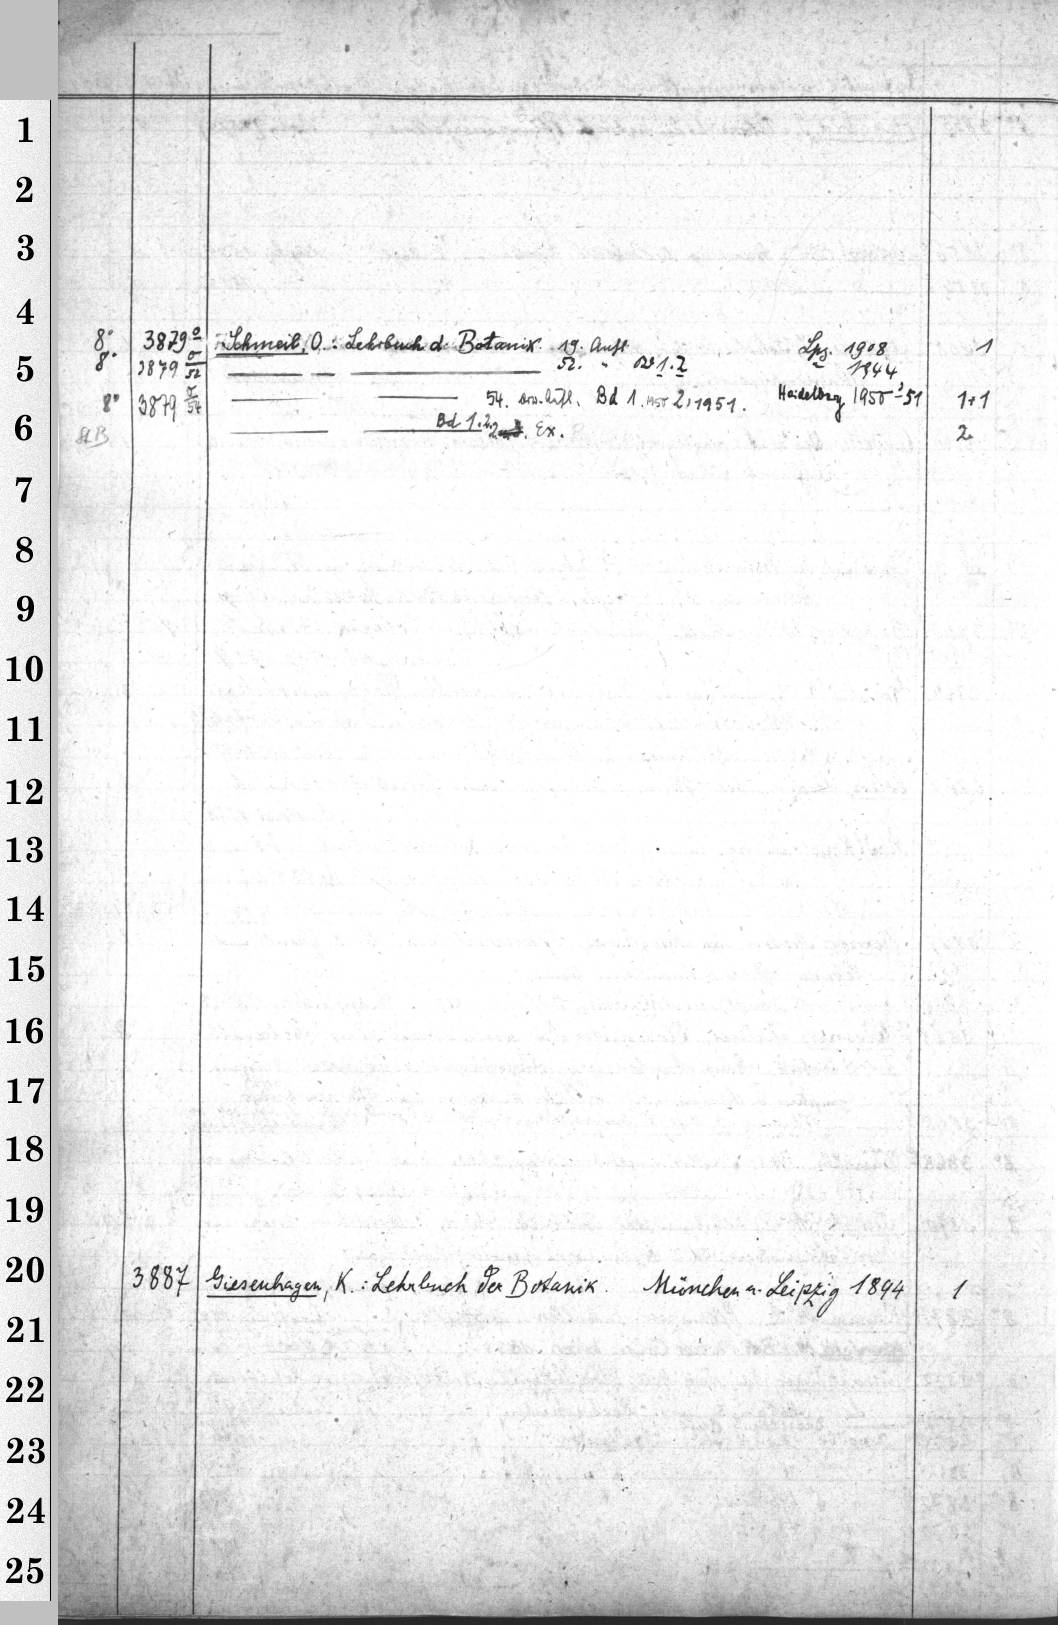 1
2
3
4
8° 3879 o Schmeil, O.: Lehrbuch d. Botanik. 19. Aufl. Lpz. 1908 1
5
8° 3879 o/52 — — — 52. " Bd 1.2 " 1944
8° 3879 54 — — 54. Aufl. Bd 1. 1950 2, 1951. Heidelberg 1950-51 1+1
6
StB — — Bd 1.2 2. Ex. 2
7
8
9
10
11
12
13
14
15
16
17
18
19
20
3887 Giesenhagen, K.: Lehrbuch der Botanik. München u. Leipzig 1894 1
21
22
23
24
25